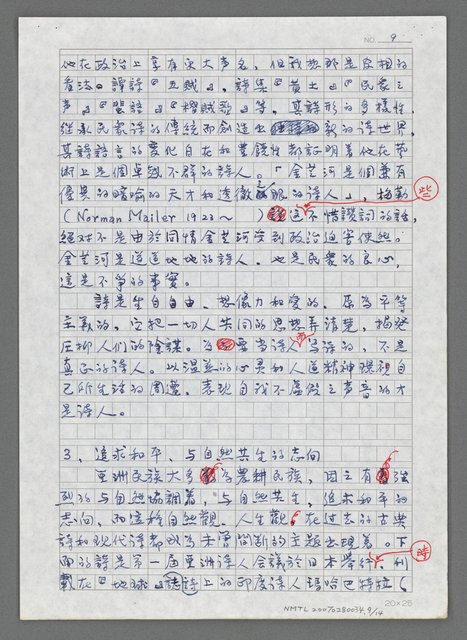 NO. 9
他在政治上享有宋大声名，但我想那是皮相的
看法。譚詩『五賊』，詩集『黃土』『民衆之
声』『蜚語』『櫻賊歌』等，其詩形的多樣性，
継承民衆詩的傳統而創造出新的詩世界，
其詩語言的変化自在和豊饒性都証明着他在藝
術上是個卓越不群的詩人。「金芝河是個兼有
優異的暗喻的天才和透徹的詩人」，梅勒
(Norman Mailer 1923～ ) 這些不惜讚詞的話，
絕對不是由於同情金芝河受到政治迫害使然。
金芝河是道道地地的詩人，也是民衆的良心，
這是不争的事實。
詩是生自自由、想像力和愛的，屬於平等
主義的。它把一切人共同的思想弄清楚，揭発
圧抑人们的陰謀。為要當詩人而写詩的，不是
真正的詩人。以溫柔的心灵和人道精神環視自
己所生活的周遭，表現自我不虛假之声音的才
是詩人。
3、追求和平、与自然共生的志向
亜洲民族大多為農耕民族，因之有強
烈的与自然協調着，与自然共生，追求和平的
志向，而這種自然觀、人生觀，在过去的古典
詩和現代詩都成為未曾间断的主題出現着。下
面的詩是第一届亜洲詩人会議於日本举行時，刊
載在『地球』詩誌上的印度詩人瑪哈巴特拉（
20×25
NMTL 20070280034, 9/14